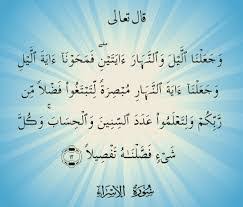 قال تعالى
وَجَعَلْنَا ٱلَّيْلَ وَٱلنَّهَارَ ءَايَتَيْنِ ۖ فَمَحَوْنَآ ءَايَةَ ٱلَّيْلِ
وَجَعَلْنَآ ءَايَةَ ٱلنَّهَارِ مُبْصِرَةً لِّتَبْتَغُوا۟ فَضْلًا مِّن
رَّبِّكُمْ وَلِتَعْلَمُوا۟ عَدَدَ ٱلسِّنِينَ وَٱلْحِسَابَ ۚ وَكُلَّ
شَىْءٍ فَصَّلْنَـٰهُ تَفْصِيلًا ۝١٢
سُورَةُ الإِسْرَاءِ